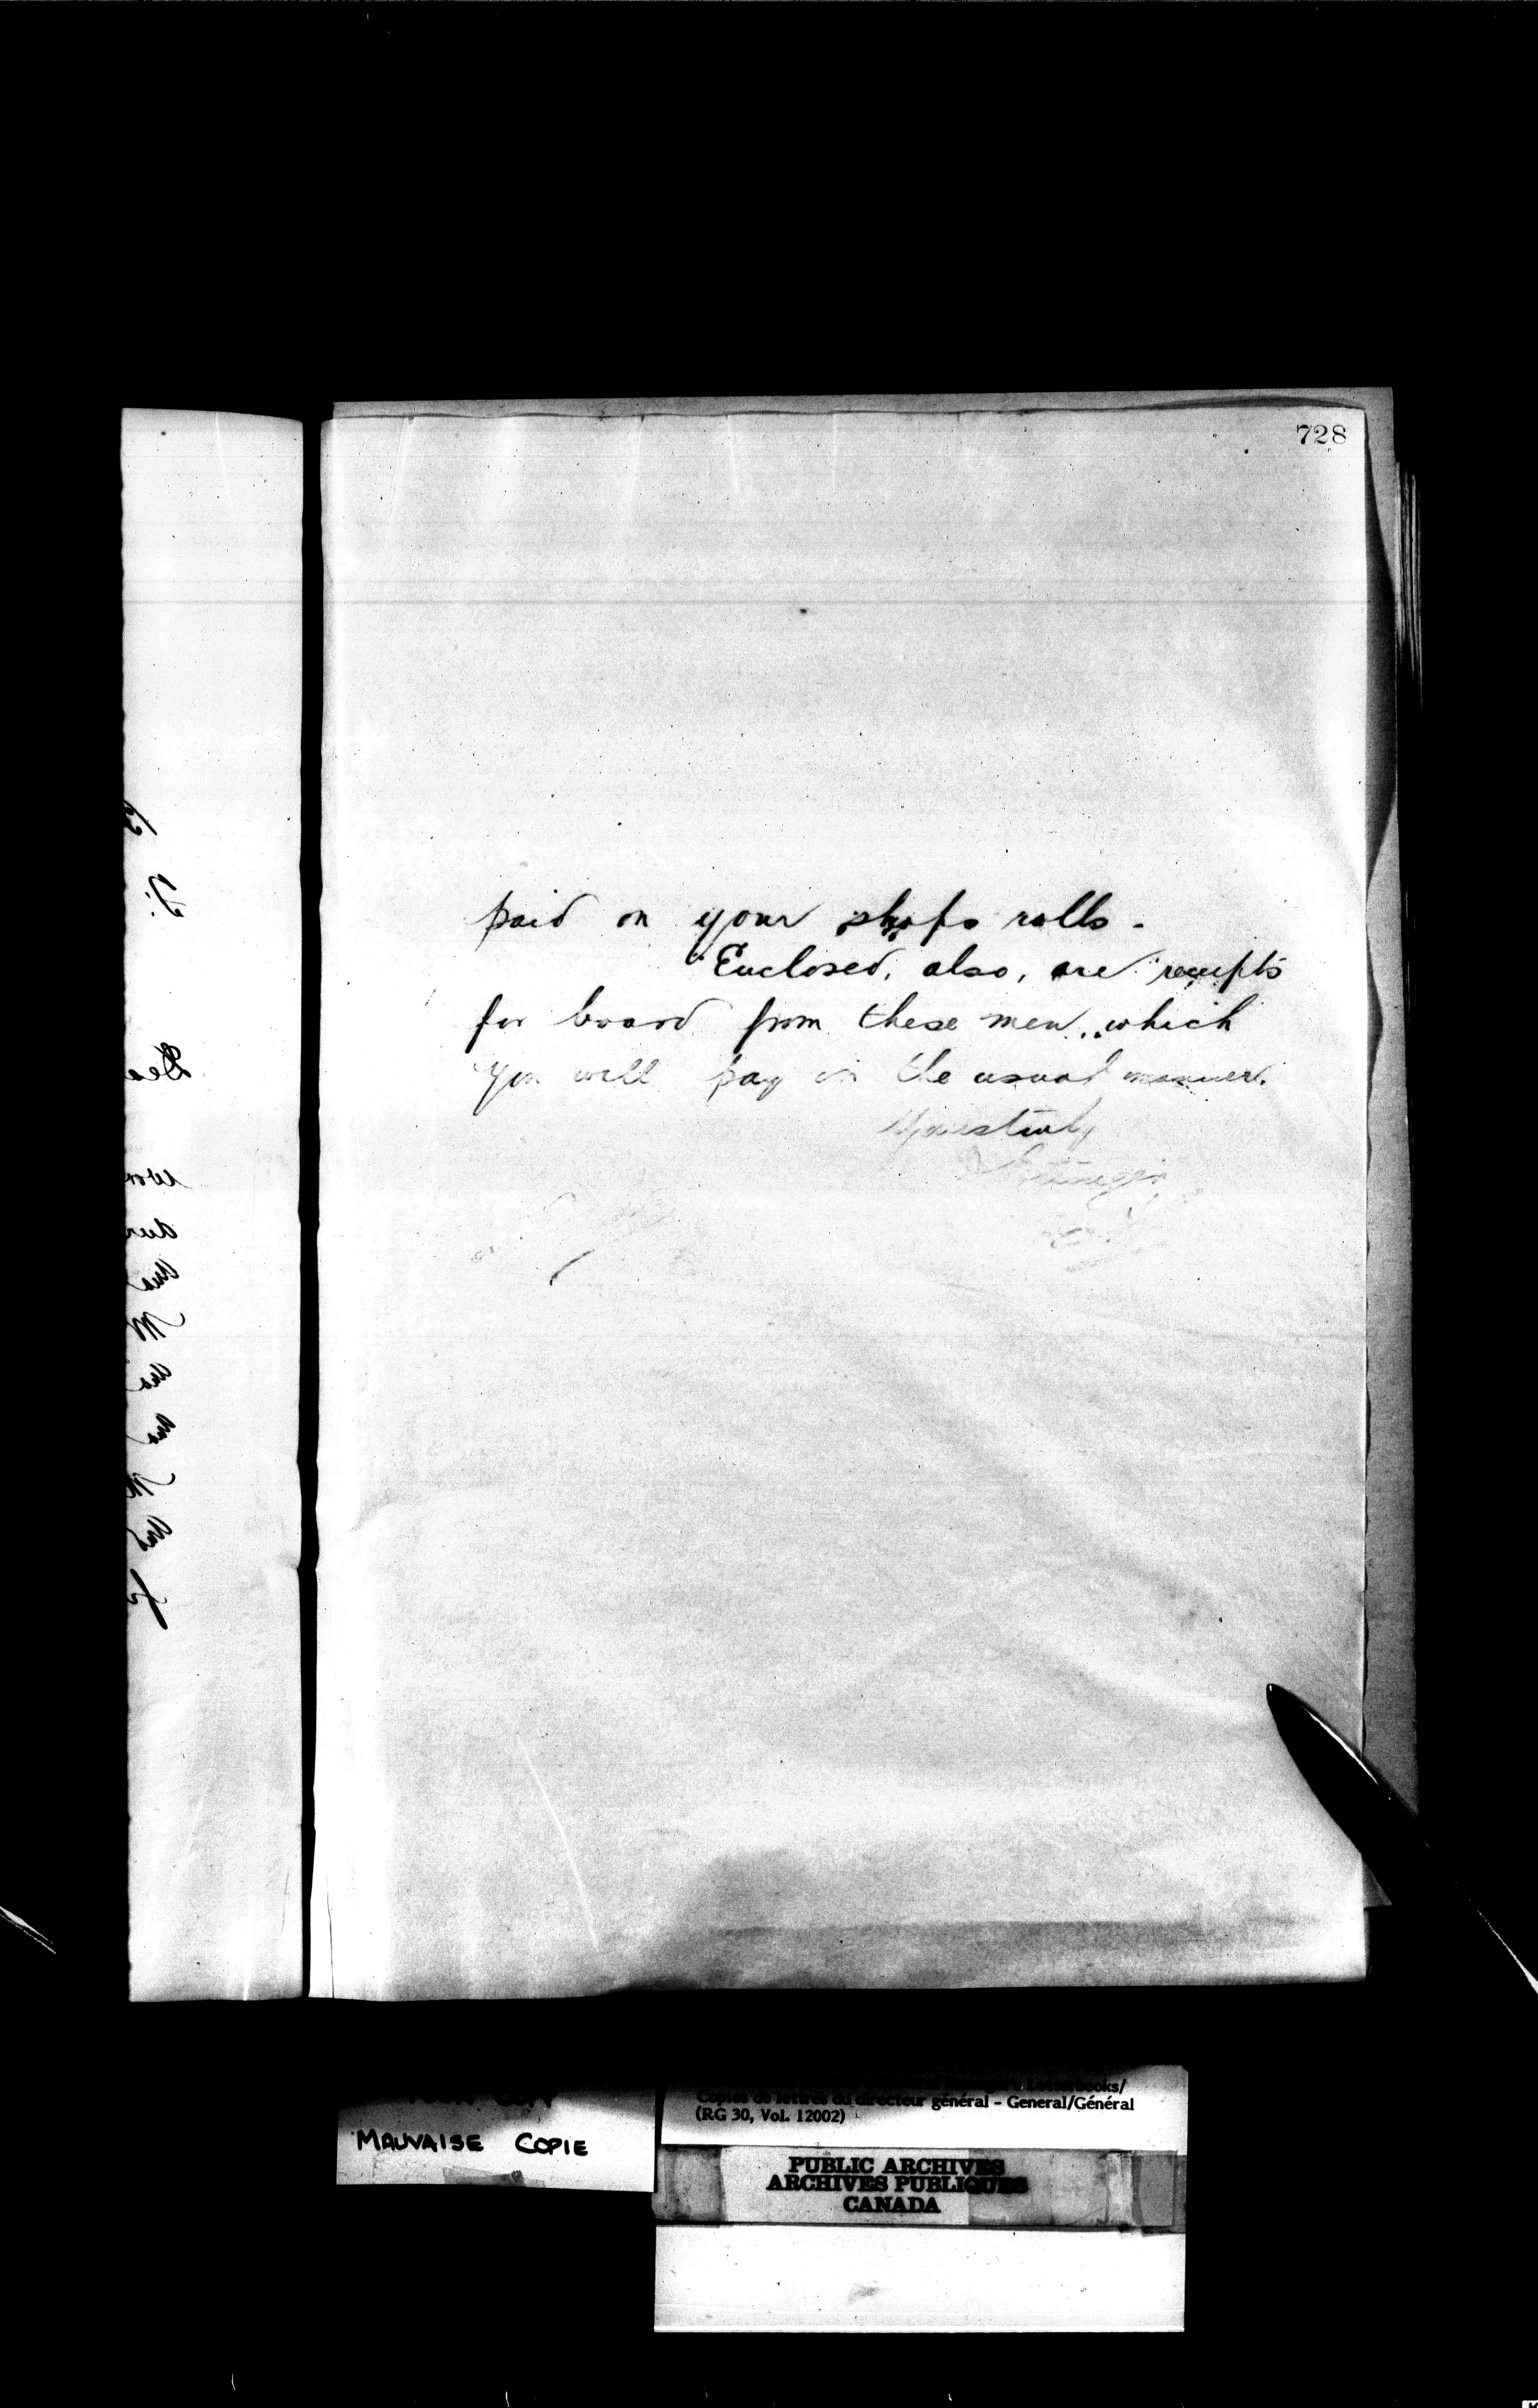 728
paid on your shops rolls.
Enclosed, also, are receipts
for board from these men, which
you will pay in the usual manner.
Yours truly
MAUVAISE COPIE
Letterbooks/
Copies de lettres du directeur général - General/Général
(RG 30, Vol. 12002)
PUBLIC ARCHIVES
ARCHIVES PUBLIQUES
CANADA